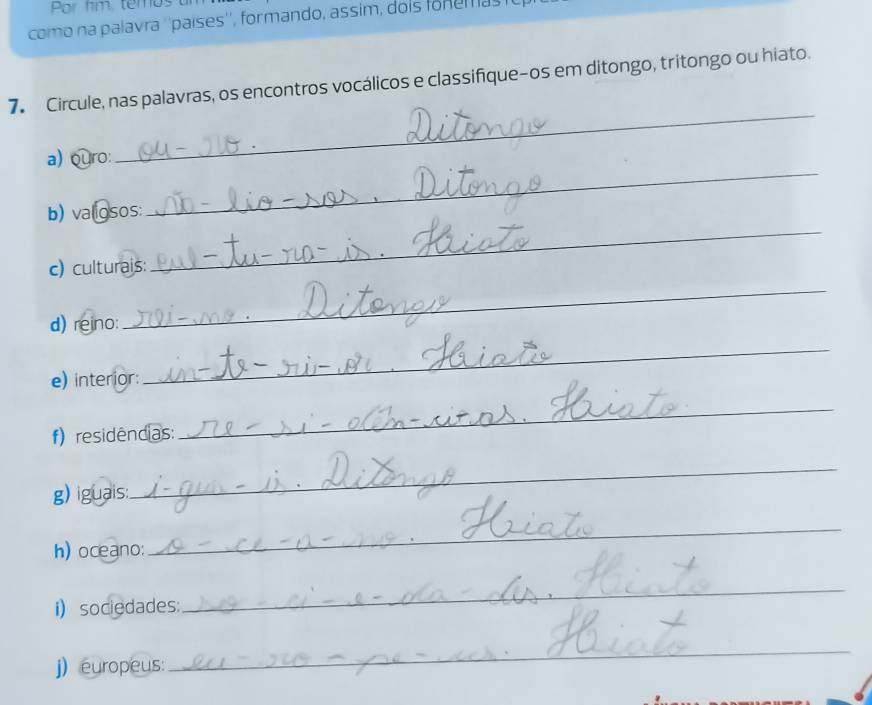 Por fim, temos um
como na palavra "países", formando, assim, dois fonemas
7. Circule, nas palavras, os encontros vocálicos e classifique-os em ditongo, tritongo ou hiato.
a) ouro: ou-ro. Ditongo
b) valiosos: va-lio-sos. Ditongo
c) culturais: cul-tu-ra-is. Hiato
d) reino: rei-no. Ditongo
e) interior: in-te-ri-or. Hiato
f) residências: re-si-dên-ci-as. Hiato
g) iguais: i-gua-is. Ditongo
h) oceano: o-ce-a-no. Hiato
i) sociedades: so-ci-e-da-des. Hiato
j) europeus: eu-ro-pe-us. Hiato